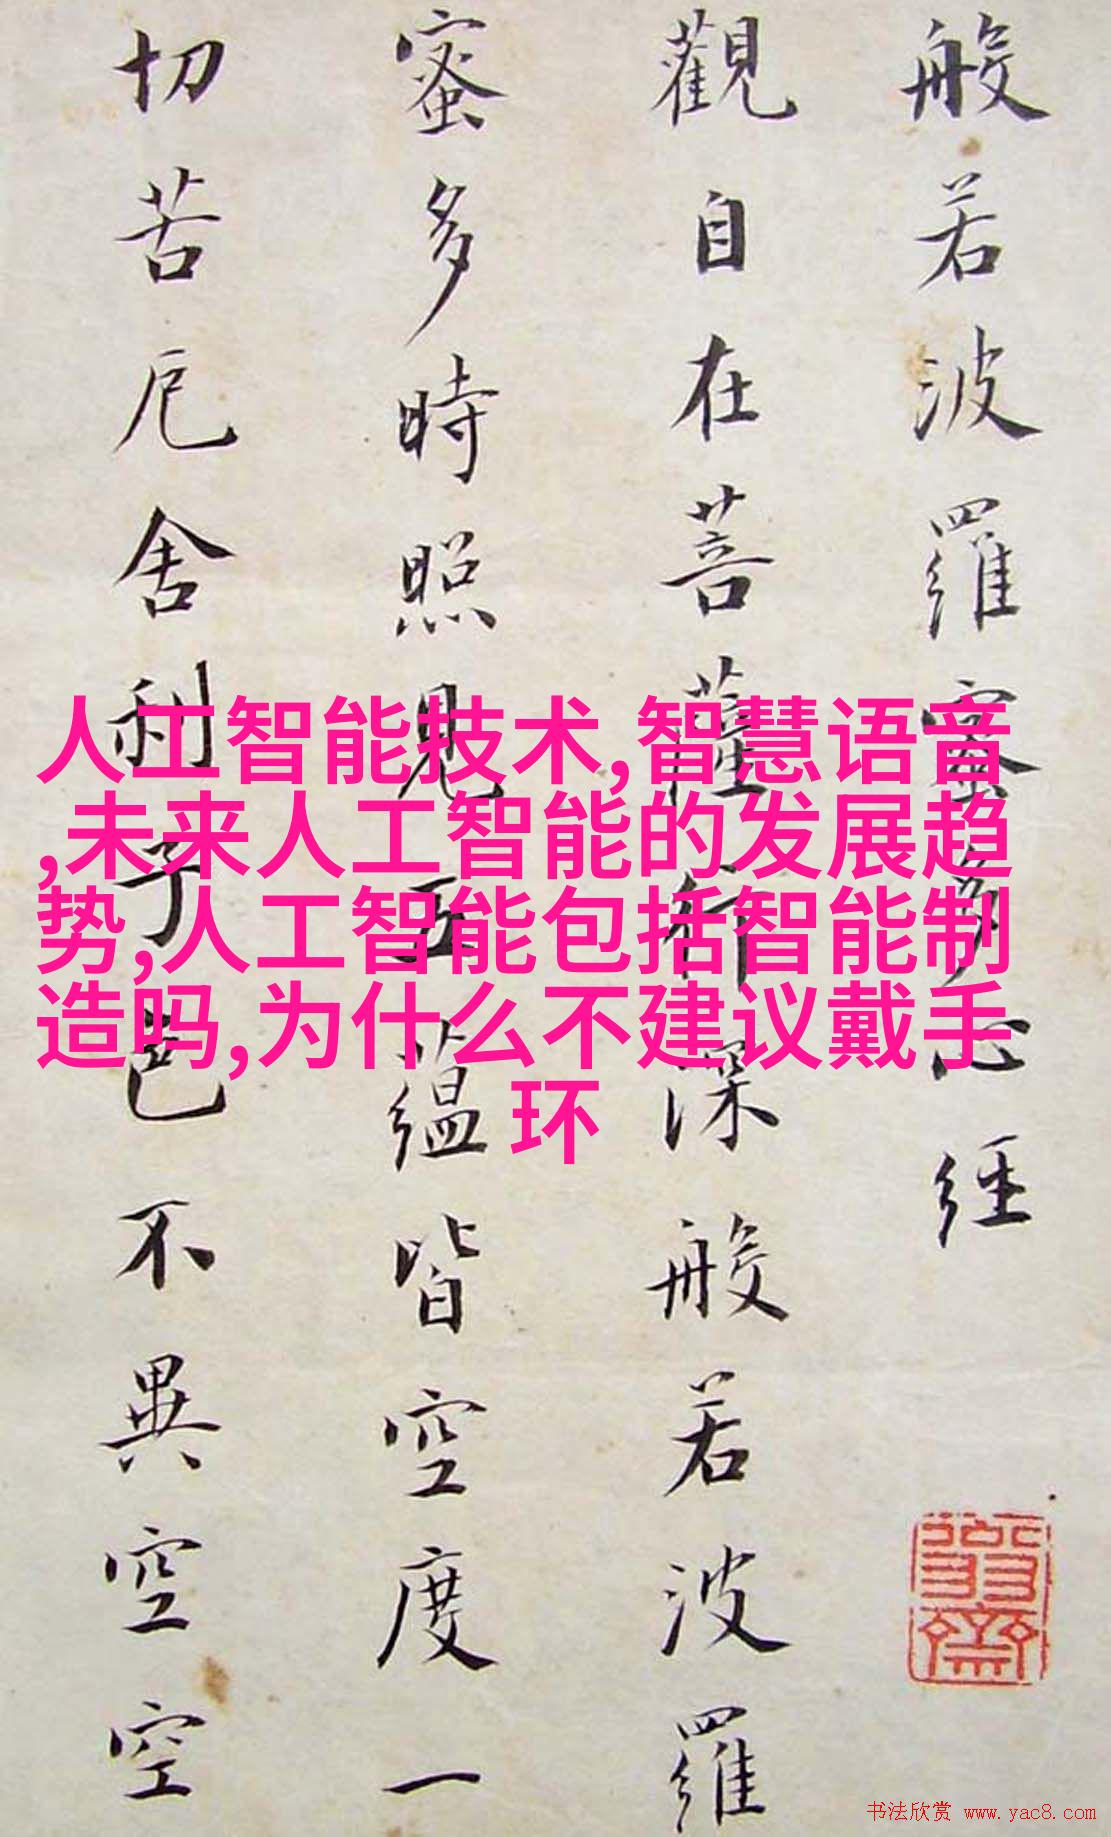 般若波羅蜜多心經
觀自在菩薩行深般若波羅
蜜多時照見五蘊皆空度一
切苦厄舍利子色不異空空
人工智能技术,智慧语音
,未来人工智能的发展趋
势,人工智能包括智能制
造吗,为什么不建议戴手
环
书法欣赏 www.yac8.com